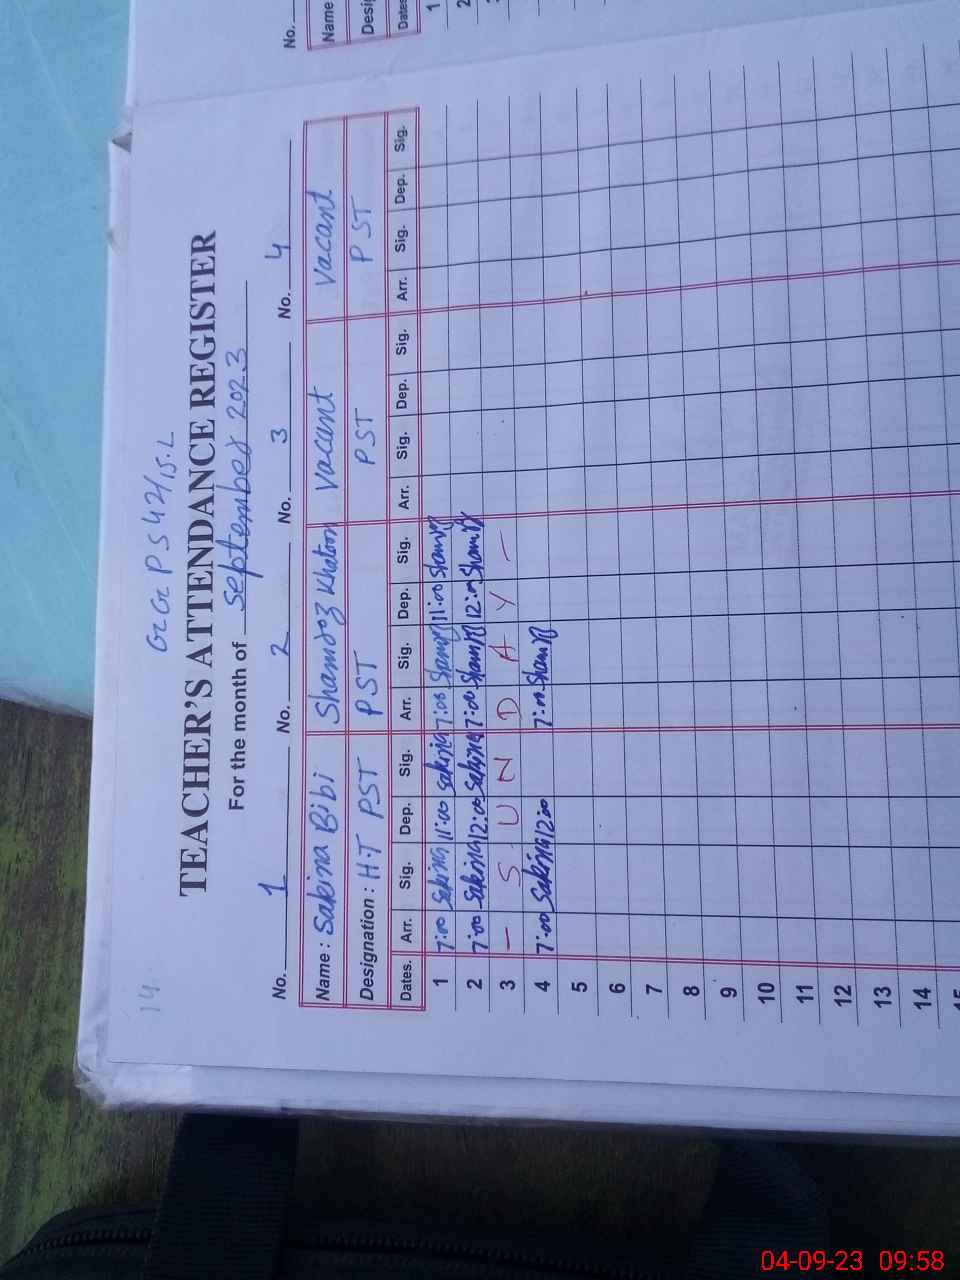 14.
GGPS 42/15.L
TEACHER'S ATTENDANCE REGISTER
For the month of September 2023
No. 1 No. 2 No. 3 No. 4
Name : Sakina Bibi Shamoz Khatoon Vacant Vacant
Designation : H.T PST PST PST PST
Dates. Arr. Sig. Dep. Sig. Arr. Sig. Dep. Sig. Arr. Sig. Dep. Sig. Arr. Sig. Dep. Sig.
1 7:00 Sakina 11:00 Sakina 7:00 11:00
2 7:00 Sakina 12:00 Sakina 7:00 12:00
3 — S U N D A Y —
4 7:00 Sakina 12:00 7:00
5
6
7
8
9
10
11
12
13
14
15
No.
Name
Desig
Dates
1
2
04-09-23 09:58